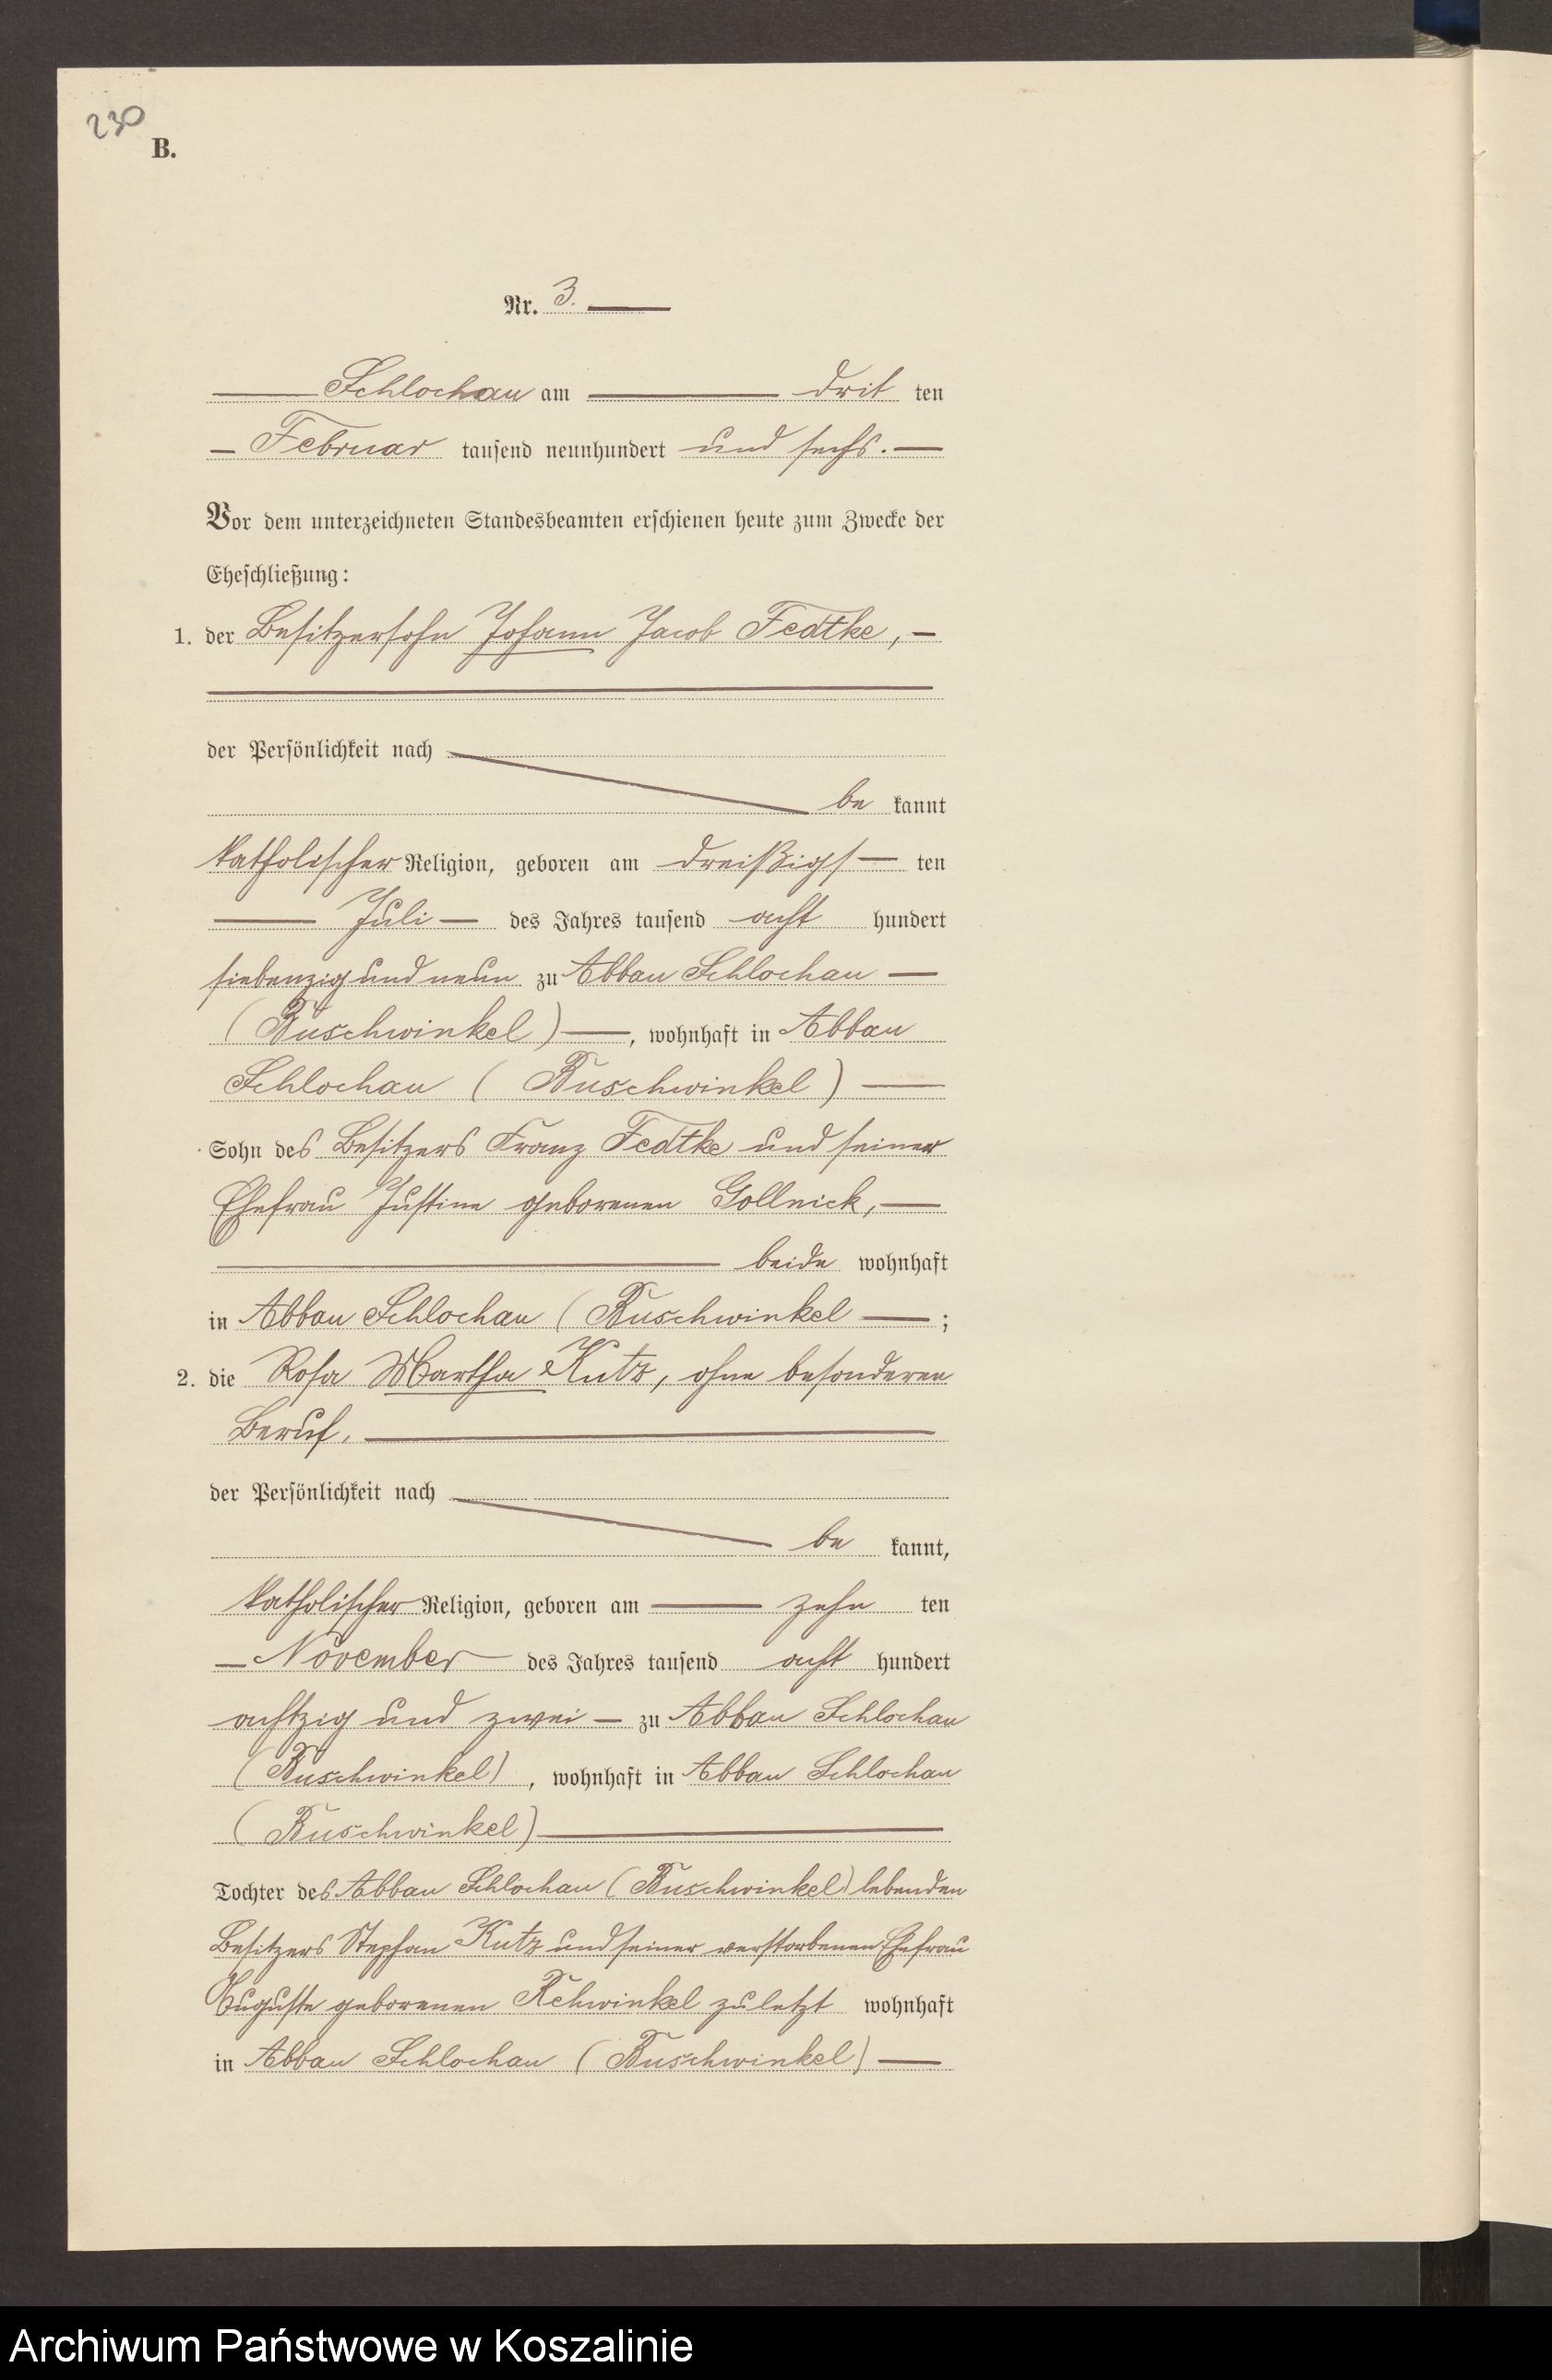 230
B.
Nr. 3.
Schlochau am drit ten
Februar tausend neunhundert und sechs.
Vor dem unterzeichneten Standesbeamten erschienen heute zum Zwecke der
Eheschließung:
1. der Besitzersohn Johann Jacob Fedtke,
der Persönlichkeit nach
be kannt
katholischer Religion, geboren am dreißigs ten
Juli des Jahres tausend acht hundert
siebenzig und neun zu Abbau Schlochau
(Buschwinkel), wohnhaft in Abbau
Schlochau (Buschwinkel)
Sohn des Besitzers Franz Fedtke und seiner
Ehefrau Justine geborenen Gollnick,
beide wohnhaft
in Abbau Schlochau (Buschwinkel ;
2. die Rosa Martha Kutz, ohne besonderen
Beruf,
der Persönlichkeit nach
be kannt,
katholischer Religion, geboren am zehn ten
November des Jahres tausend acht hundert
achtzig und zwei zu Abbau Schlochau
(Buschwinkel), wohnhaft in Abbau Schlochau
(Buschwinkel)
Tochter des Abbau Schlochau (Buschwinkel) lebenden
Besitzers Stephan Kutz und seiner verstorbenen Ehefrau
Auguste geborenen zuletzt wohnhaft
in Abbau Schlochau (Buschwinkel)
Archiwum Państwowe w Koszalinie